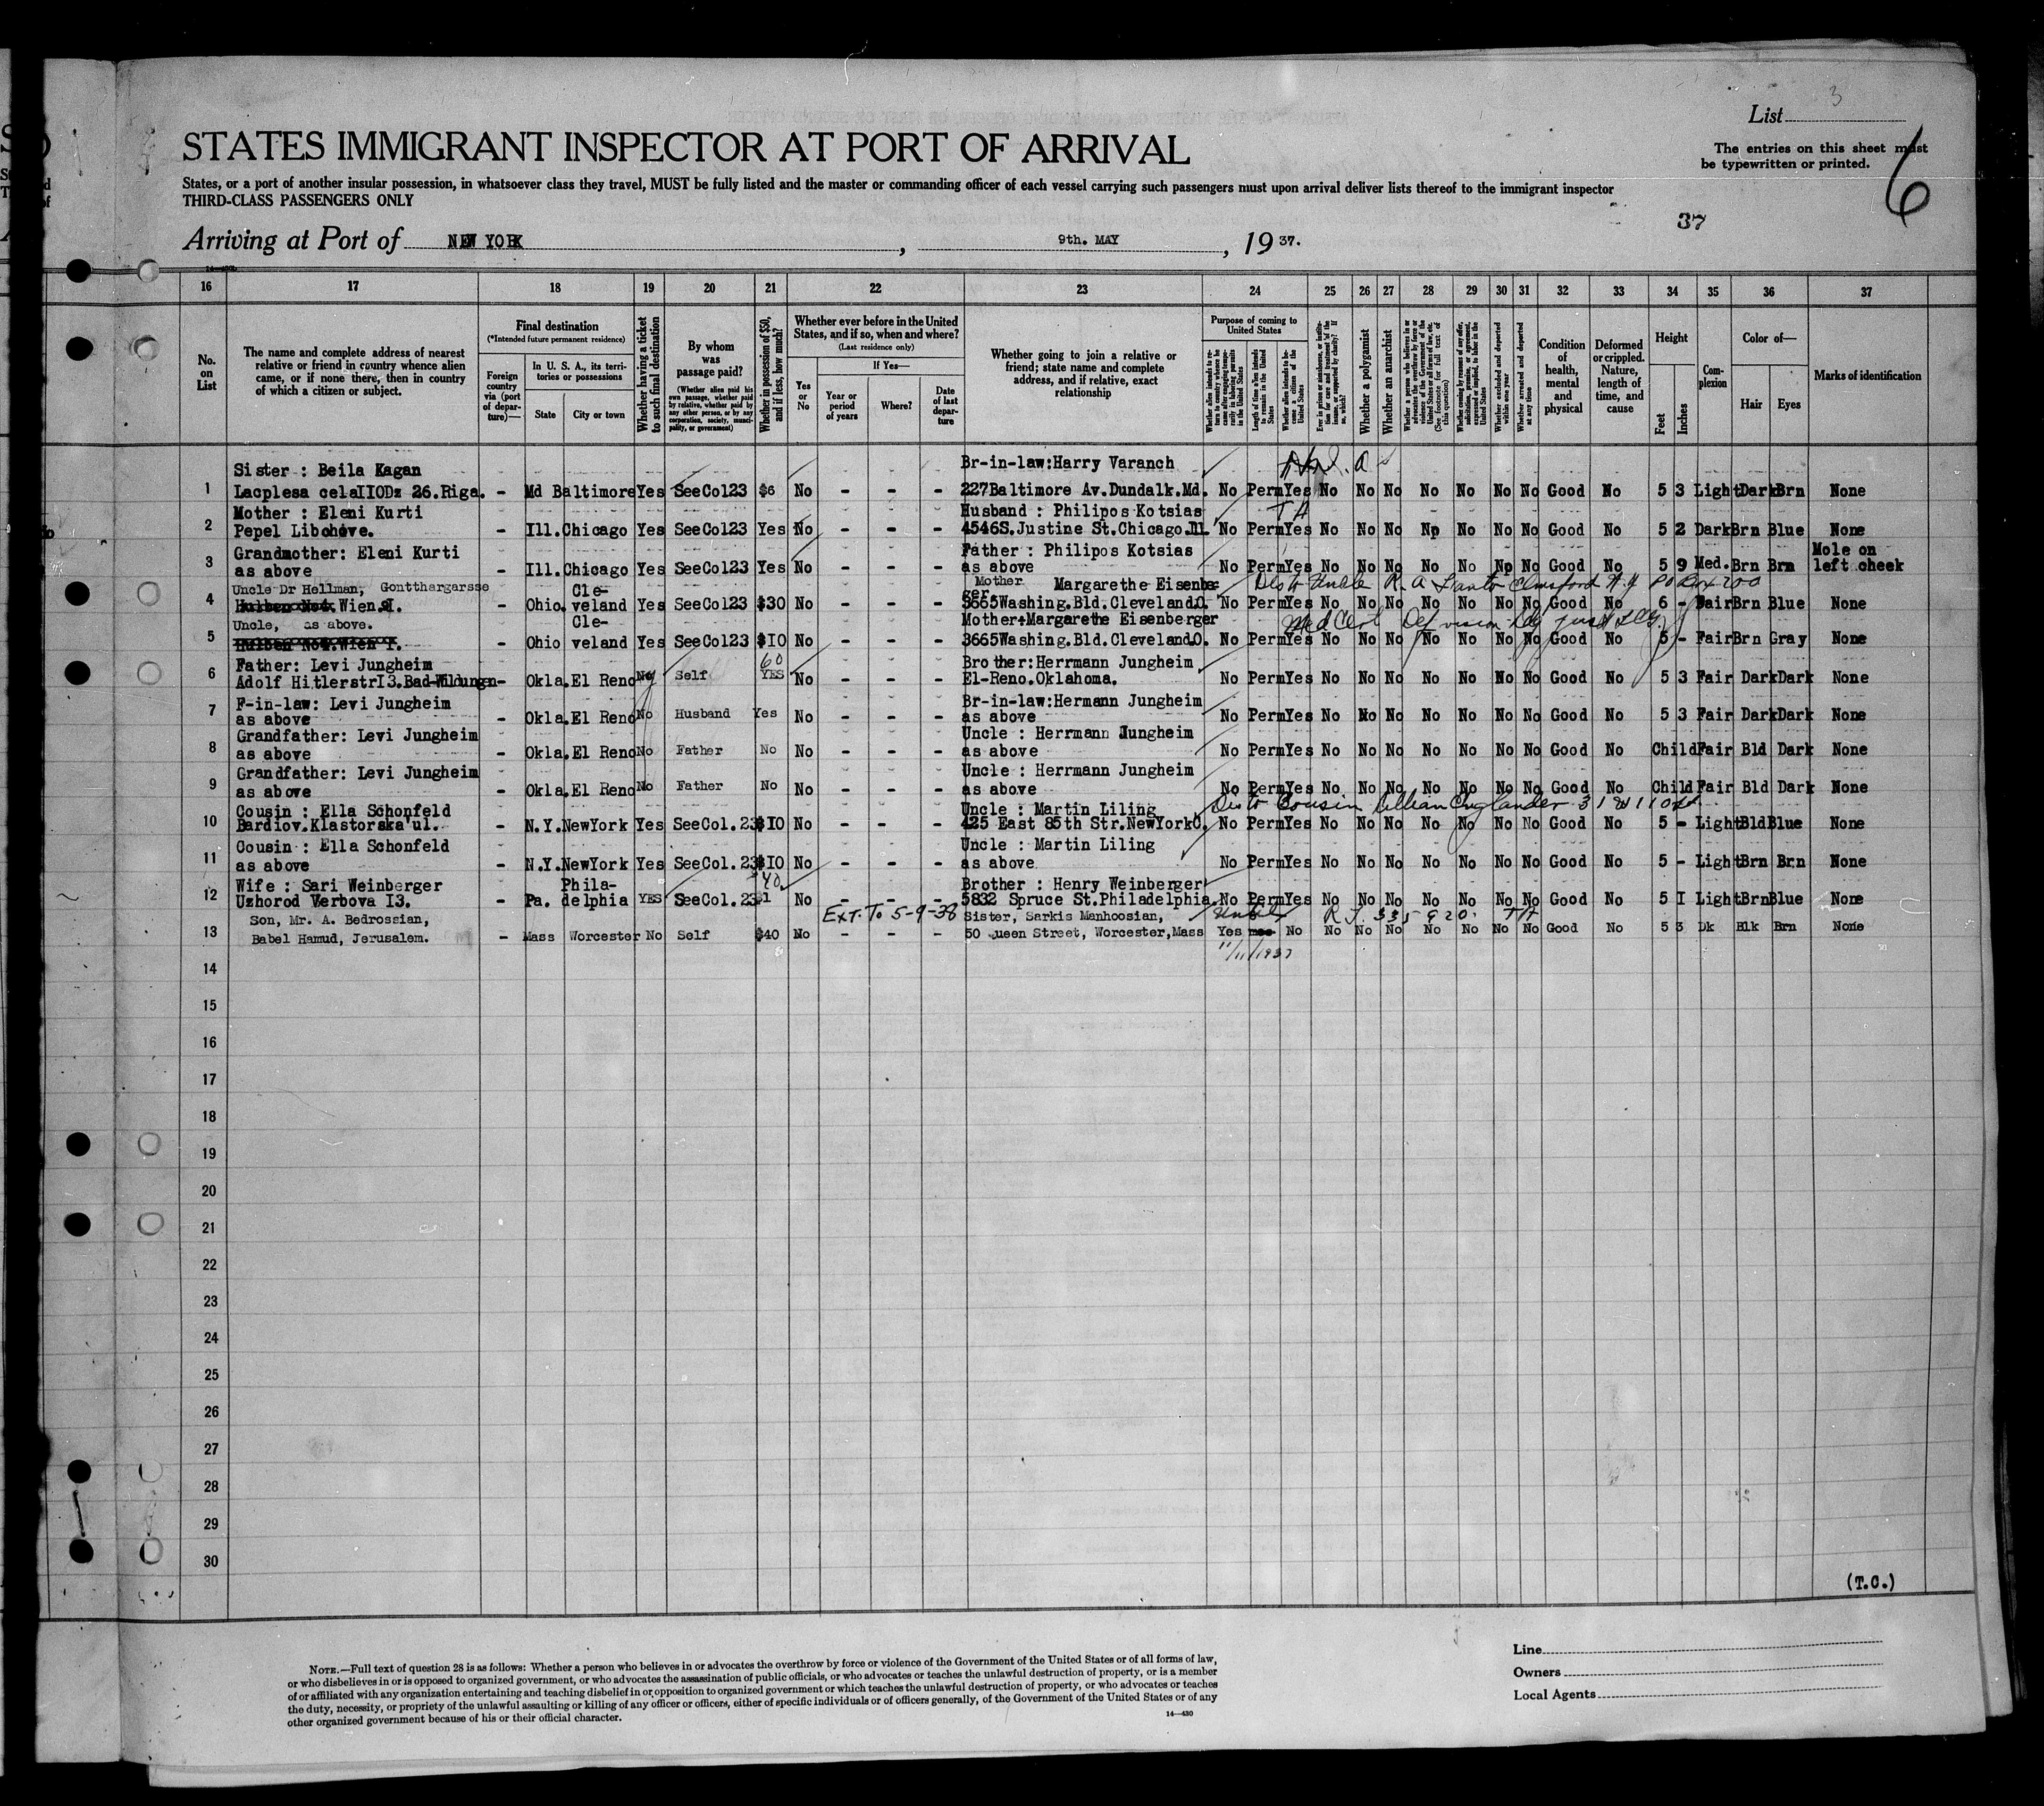 List 3
STATES IMMIGRANT INSPECTOR AT PORT OF ARRIVAL
The entries on this sheet must
be typewritten or printed.
6
States, or a port of another insular possession, in whatsoever class they travel, MUST be fully listed and the master or commanding officer of each vessel carrying such passengers must upon arrival deliver lists thereof to the immigrant inspector
THIRD-CLASS PASSENGERS ONLY
37
Arriving at Port of NEW YORK, 9th. MAY, 19 37.
16 17 18 19 20 21 22 23 24 25 26 27 28 29 30 31 32 33 34 35 36 37
No. on List
The name and complete address of nearest relative or friend in country whence alien came, or if none there, then in country of which a citizen or subject.
Final destination
(*Intended future permanent residence)
Foreign country via (port of departure)—
In U. S. A., its territories or possessions
State
City or town
Whether having a ticket to such final destination
By whom was passage paid?
(Whether alien paid his own passage, whether paid by relative, whether paid by any other person, or by any corporation, society, municipality, or government)
Whether in possession of $50, and if less, how much?
Whether ever before in the United States, and if so, when and where?
(Last residence only)
Yes or No
If Yes—
Year or period of years
Where?
Date of last departure
Whether going to join a relative or friend; state name and complete address, and if relative, exact relationship
Purpose of coming to United States
Length of time alien intends to remain in the United States
Whether alien intends to become a citizen of the United States
Whether a polygamist
Whether an anarchist
Whether excluded and deported within one year
Whether arrested and deported at any time
Condition of health, mental and physical
Deformed or crippled. Nature, length of time, and cause
Height
Feet
Inches
Complexion
Color of—
Hair
Eyes
Marks of identification
Sister : Beila Kagan Br-in-law:Harry Varanch
1 Lacplesa celaIIODz 26.Riga. - Md Baltimore Yes SeeCol23 $6 No - - - 227Baltimore Av.Dundalk.Md. No Perm Yes No No No No No No No Good No 5 3 Light Dark Brn None
Mother : Eleni Kurti Husband : Philipos Kotsias
2 Pepel Libohove. - Ill. Chicago Yes SeeCol23 Yes No - - - 4546S.Justine St.Chicago.Ill No Perm Yes No No No No No No No Good No 5 2 Dark Brn Blue None
Grandmother: Eleni Kurti Father : Philipos Kotsias Mole on
3 as above - Ill. Chicago Yes SeeCol23 Yes No - - - as above No Perm Yes No No No No No No No Good No 5 9 Med. Brn Brn left cheek
Uncle Dr Hellman, Gontthargarsse Cle- Mother Margarethe Eisenberger
4 Wien I. - Ohio. veland Yes SeeCol23 $30 No - - - 3665Washing.Bld.Cleveland.O. No Perm Yes No No No No No No No Good No 6 - Fair Brn Blue None
Uncle, as above. Cle- Mother:Margarethe Eisenberger
5 - Ohio veland Yes SeeCol23 $IO No - - - 3665Washing.Bld.Cleveland.O. No Perm Yes No No No No No No No Good No 5 - Fair Brn Gray None
Father: Levi Jungheim 60 Brother:Herrmann Jungheim
6 Adolf HitlerstrI3.Bad-Wildungen - Okla. El Reno No Self YES No - - - El-Reno.Oklahoma. No Perm Yes No No No No No No No Good No 5 3 Fair Dark Dark None
F-in-law: Levi Jungheim Br-in-law:Hermann Jungheim
7 as above - Okla. El Reno No Husband Yes No - - - as above No Perm Yes No No No No No No No Good No 5 3 Fair Dark Dark None
Grandfather: Levi Jungheim Uncle : Herrmann Jungheim
8 as above - Okla. El Reno No Father No No - - - as above No Perm Yes No No No No No No No Good No Child Fair Bld Dark None
Grandfather: Levi Jungheim Uncle : Herrmann Jungheim
9 as above - Okla. El Reno No Father No No - - - as above No Perm Yes No No No No No No No Good No Child Fair Bld Dark None
Cousin : Ella Schonfeld Uncle : Martin Liling
10 Bardiov.Klastorska ul. - N.Y. NewYork Yes SeeCol.23 $IO No - - - 425 East 85th Str.NewYorkC. No Perm Yes No No No No No No No Good No 5 - Light Bld Blue None
Cousin : Ella Schonfeld Uncle : Martin Liling
11 as above - N.Y. NewYork Yes SeeCol.23 $IO No - - - as above No Perm Yes No No No No No No No Good No 5 - Light Brn Brn None
Wife : Sari Weinberger Phila- 40 Brother : Henry Weinberger
12 Uzhorod Verbova I3. - Pa. delphia YES SeeCol.23 $1 No - - - 5832 Spruce St.Philadelphia. No Perm Yes No No No No No No No Good No 5 I Light Brn Blue None
Son, Mr. A. Bedrossian, Ext. To 5-9-38 Sister, Sarkis Manhoosian, R.J. 335920.
13 Babel Hamud, Jerusalem. - Mass Worcester No Self $40 No - - - 50 ueen Street, Worcester,Mass Yes No No No No No No No No Good No 5 3 Dk Blk Brn None
11/11/1937
14
15
16
17
18
19
20
21
22
23
24
25
26
27
28
29
30
(T.C.)
NOTE.—Full text of question 28 is as follows: Whether a person who believes in or advocates the overthrow by force or violence of the Government of the United States or of all forms of law,
or who disbelieves in or is opposed to organized government, or who advocates the assassination of public officials, or who advocates or teaches the unlawful destruction of property, or is a member
of or affiliated with any organization entertaining and teaching disbelief in or opposition to organized government or which teaches the unlawful destruction of property, or who advocates or teaches
the duty, necessity, or propriety of the unlawful assaulting or killing of any officer or officers, either of specific individuals or of officers generally, of the Government of the United States or of any
other organized government because of his or their official character.
14—430
Line
Owners
Local Agents